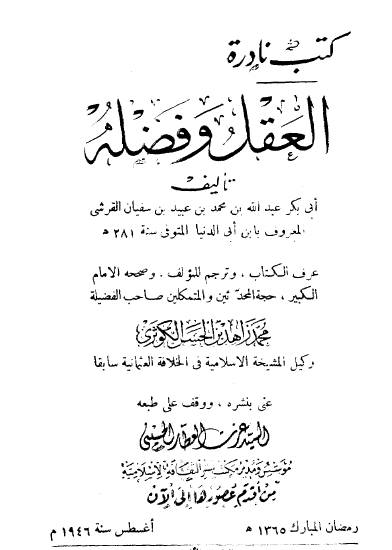 كتب نادرة
العقل وفضله
تأليف
أبي بكر عبد الله بن محمد بن عبيد بن سفيان القرشي
المعروف بابن أبي الدنيا المتوفى سنة ٢٨١ ه
عرف الكتاب ، وترجم للمؤلف . وصححه الامام
الكبير ، حجة المحدثين والمتمكلين صاحب الفضيلة
محمد زاهد بن الحسن الكوثري
وكيل المشيخة الاسلامية في الخلافة العثمانية سابقا
عنى بنشره ، ووقف على طبعه
السيد عزت العطار الحسيني
مؤسس ومدير مكتب نشر الثقافة الإسلامية
من أقدم عصورها إلى الآن
رمضان المبارك ١٣٦٥ ه أغسطس سنة ١٩٤٦ م